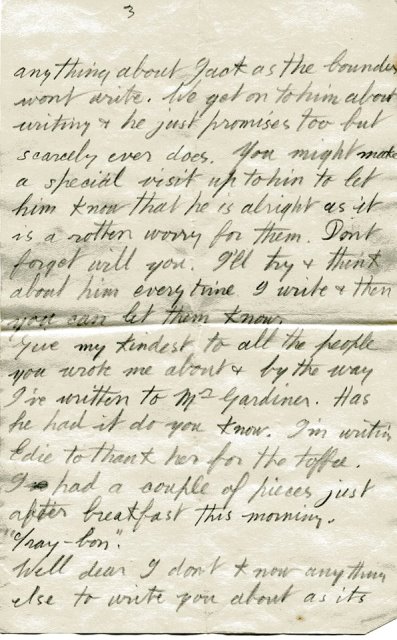 3
anything about Jack as the bounder
wont write. We get on to him about
writing & he just promises too but
scarcely ever does. You might make
a special visit up to him to let
him know that he is alright as it
is a rotten worry for them. Dont
forget will you. I'll try & think
about him everytime I write & then
you can let them know.
Give my kindest to all the people
you wrote me about & by the way
I've written to Mr Gardiner. Has
he had it do you know. I'm writin
Edie to thank her for the toffee.
I had a couple of pieces just
after breakfast this morning.
"Tray-bon".
Well dear I don't know anything
else to write you about as its